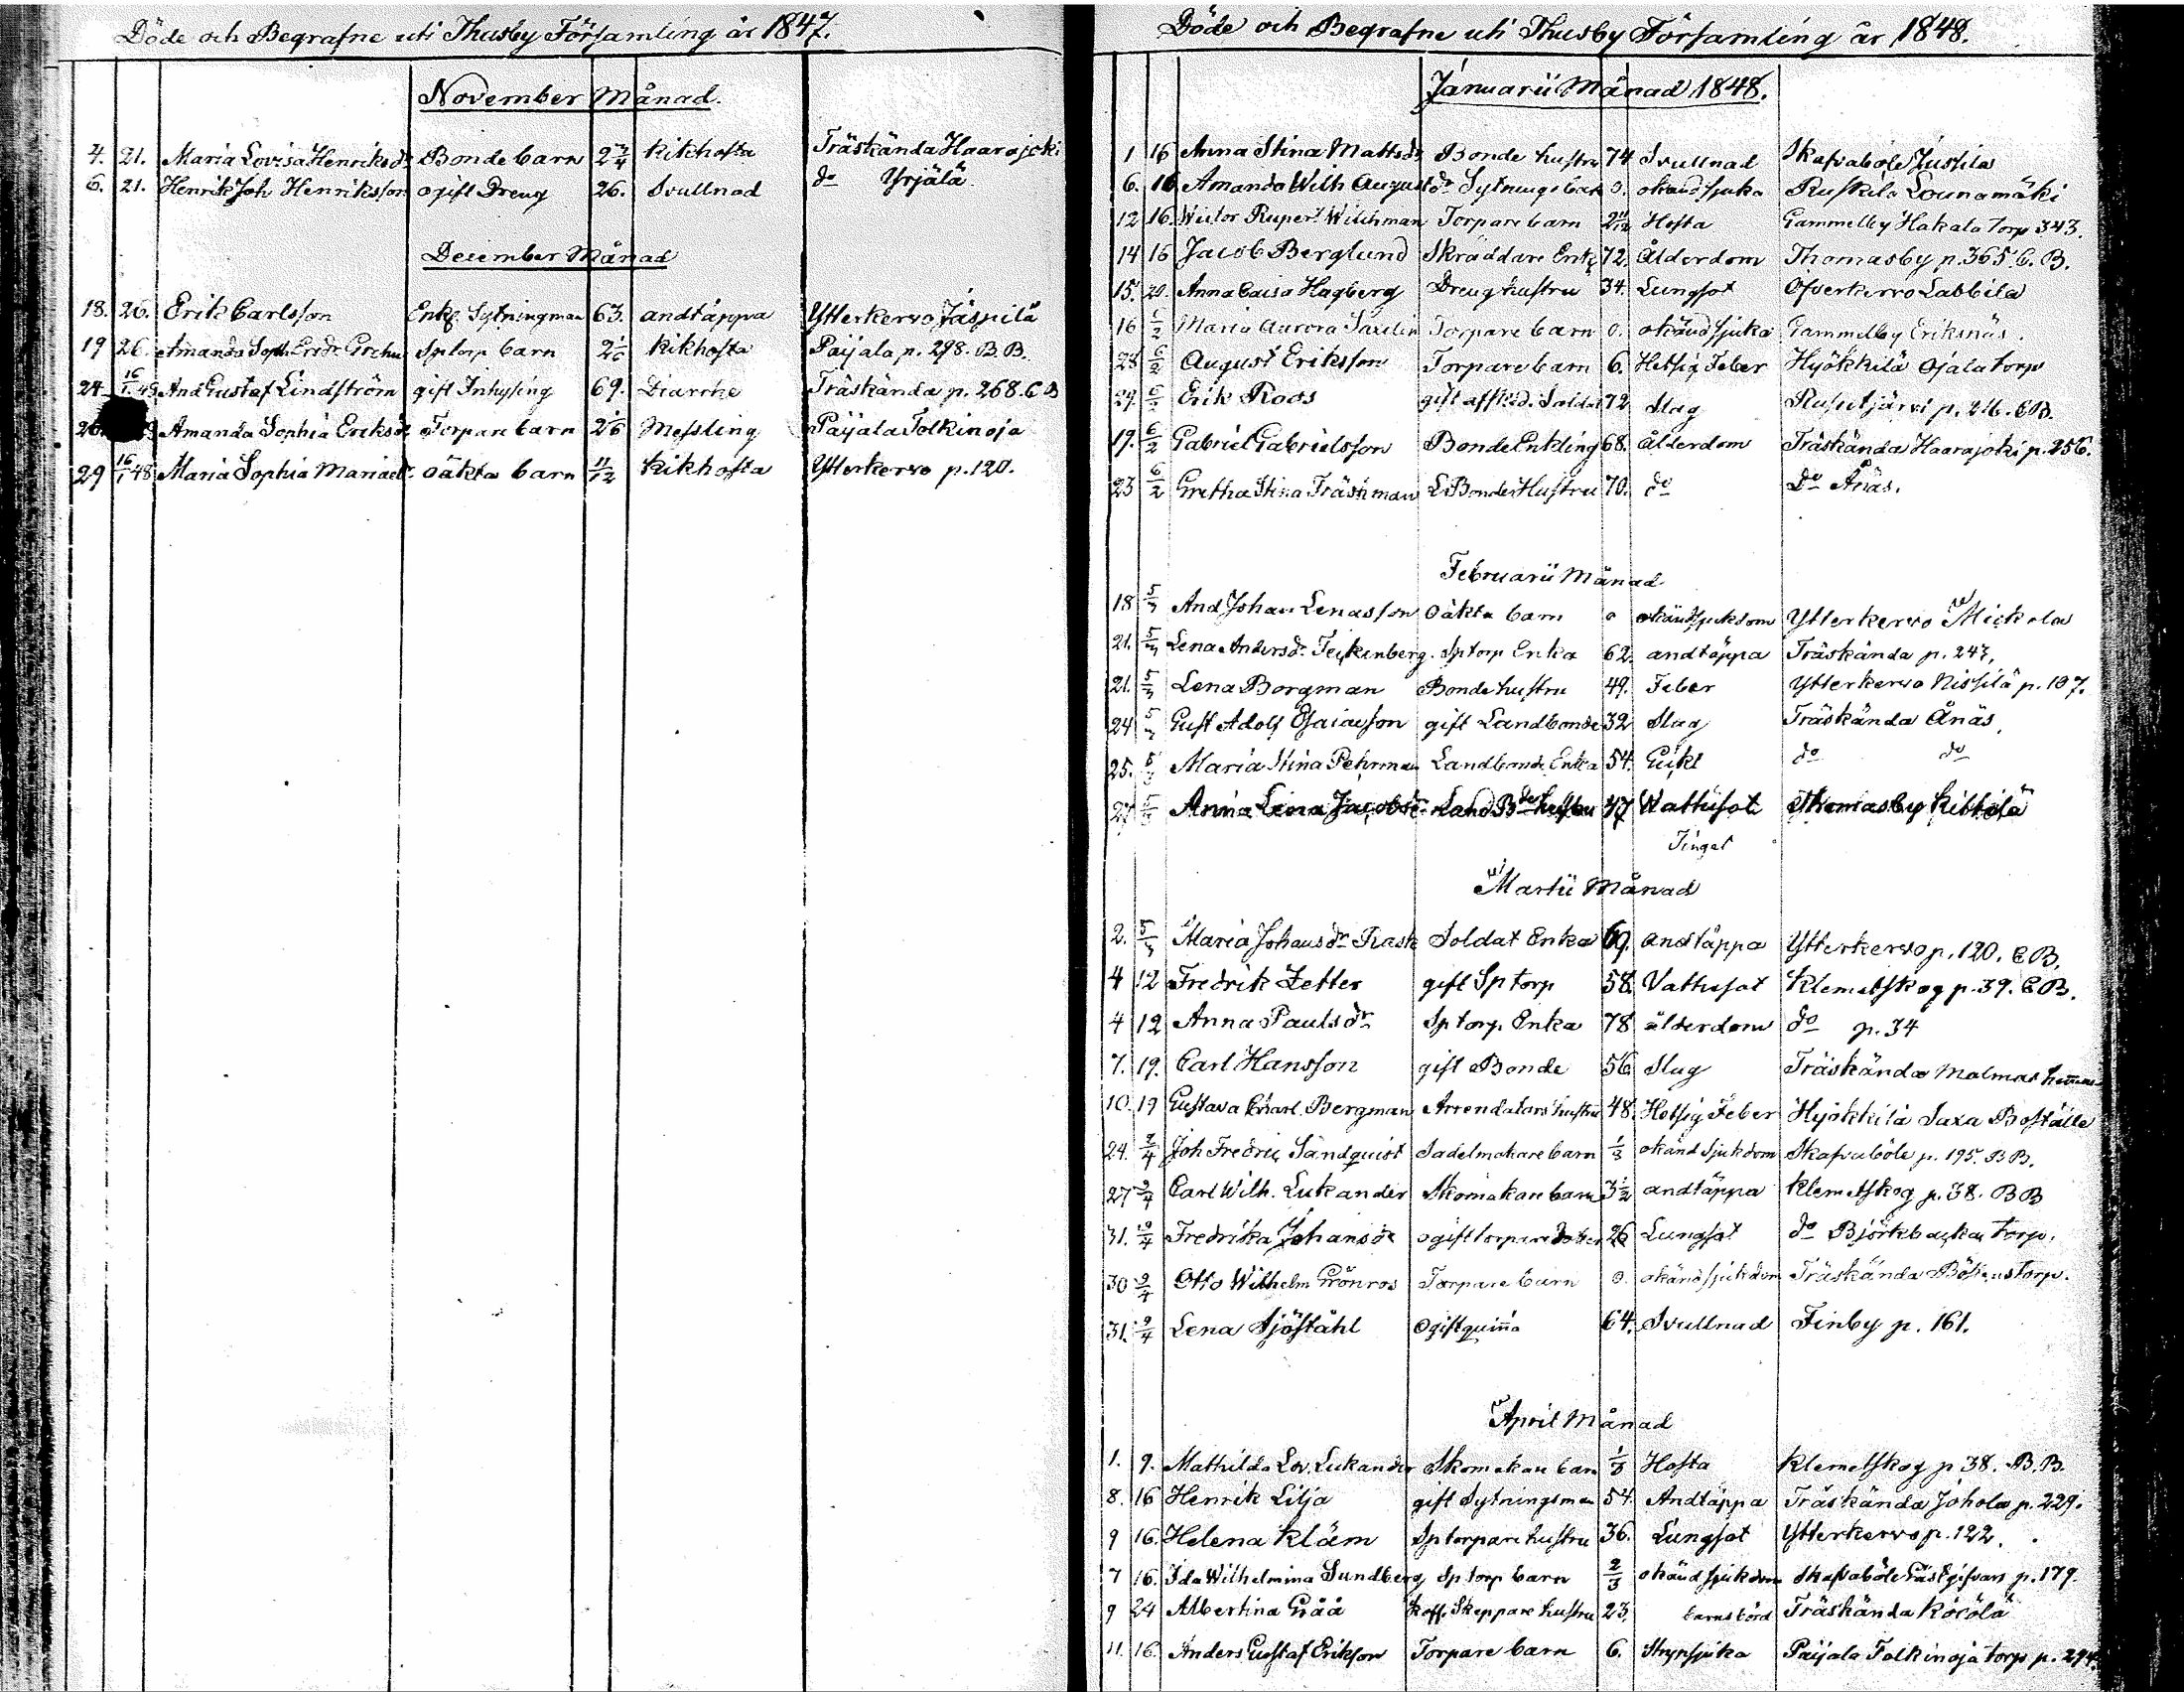 Döde och Begrafne uti Thusby Församling år 1847.
November Månad.
4. 21. Maria Lovisa Henriksdr Bonde barn 2 3/4 Kikhosta Träskända Haarajoki
6. 21. Henrik Joh Henriksson ogift Dreng 26. Svullnad do Yrjälä
December Månad
18. 26. Erik Carlsson Enkl. Sytningman 63. andtäppa Ytterkervo Jäspilä
19 26. Amanda Soph. Sptorp barn 2 1/6 Kikhosta Paijala p. 298. B.B.
24. 16/1 And Gustaf Lindström gift Inhysing 69. Diarrhe Träskända p. 268. C B
26. Amanda Sophia Eriksdr Torpare barn 2 1/6 Messling Paijala Tolkinoja
29 16/1 48 Maria Sophia Mariaedr. oäkta barn 11/12 Kikhosta Ytterkervo p. 120.
Döde och Begrafne uti Thusby Församling år 1848.
Januarii Månad 1848.
1 16 Anna Stina Mattsdr Bonde hustru 74 Svullnad Skafvaböle Justila
6. 16 Amanda Wilh Augustdr Sytnings barn 0. okänd sjuka Ruskila Lounamäki
12 16. Victor Rupert Wichman Torpare barn 2 11/12 Hosta Gammelby Hakala torp 343.
14 16 Jacob Berglund Skräddare Enkl 72. Ålderdom Thomasby p. 365. C. B.
15. 20. Anna Caisa Hagberg Dreng hustru 34. Lungsot Öfverkervo Labbila
16 6/2 Maria Aurora Saxelin Torpare barn 0. okänd sjuka Gammelby Eriksnäs.
28 6/2 August Eriksson Torpare barn 6. Hetsig Feber Hyökkilä Ojala torp
29. 6/2 Erik Roos gift affsked. Soldat 72 Slag Rusutjärvi p. 216. C.B.
19. 6/2 Gabriel Gabrielsson Bonde Enkling 68. ålderdom Träskända Haarajoki p. 256.
23 6/2 Gretha Stina Träskman L Bonde Hustru 70. do Do Ånäs.
Februarii Månad
18 5/3 And Johan Lenasson oäkta barn 0 okänd sjukdom Ytterkervo Mickola
21. 5/3 Lena Andersdr. Feickenberg. Sptorp Enka 62. andtäppa Träskända p. 247,
21. 5/3 Lena Borgman Bonde hustru 49. Feber Ytterkervo Nissilä p. 107.
24 5/3 Gust Adolf Esaiasson gift Landbonde 32 Slag Träskända Ånäs
25. 5/3 Maria Stina Pehrman Landbonde Enka 54. Gikt do do
27 5/3 Anna Lena Jacobsdr Land Bde hustru 47 Wattusot Thomasby Kittilä
Inget
Martii Månad
2. 5/3 Maria Johansdr Rask Soldat Enka 69. andtäppa Ytterkervo p. 120. C B.
4 12 Fredrik Zetter gift Sp torp 58. Vattusot Klemetskog p. 39. C B.
4 12 Anna Paulsdr Sp torp. Enka 78 ålderdom do p. 34
7. 19. Carl Hansson gift Bonde 56 Slag Träskända Malmas
10. 19 Gustava Bergman Arrendators hustru 48. Hetsig Feber Hyökkilä Saxa Boställe
24. 2/4 Joh Fredric Sandquist Sadelmakare barn 1/3 okänd sjukdom Skafvaböle p. 195. B B.
27 2/4 Carl Wilh. Lukander Skomakare barn 3 1/2 andtäppa Klemetskog p. 38. B B
31. 9/4 Fredrika Johansdr ogift torpare Dotter 26 Lungsot do Björkbacka torp.
30 9/4 Otto Wilhelm Grönros Torpare barn 0. okänd sjukdom Träskända
31. 9/4 Lena Sjöståhl ogift quinna 64. Svullnad Finby p. 161.
April Månad
1. 9. Mathilda Lov. Lukander Skomakare barn 1/3 Hosta Klemetskog p 38. B.B.
8. 16 Henrik Lilja gift Sytningsman 54. Andtäppa Träskända Johola p. 229.
9 16. Helena Kläm Sp torpare hustru 36. Lungsot Ytterkervo p. 122.
7 16. Ida Wilhelmina Sundberg Sp torp barn 2/3 okänd sjukdom Skafvaböle Gästgifvars p. 179.
9 24 Albertina Gråå Koff. Skeppare hustru 23. barnsbörd Träskända
11. 16. Anders Gustaf Erikson Torpare barn 6. Strypsjuka Paijala Tolkinoja torp p. 294.